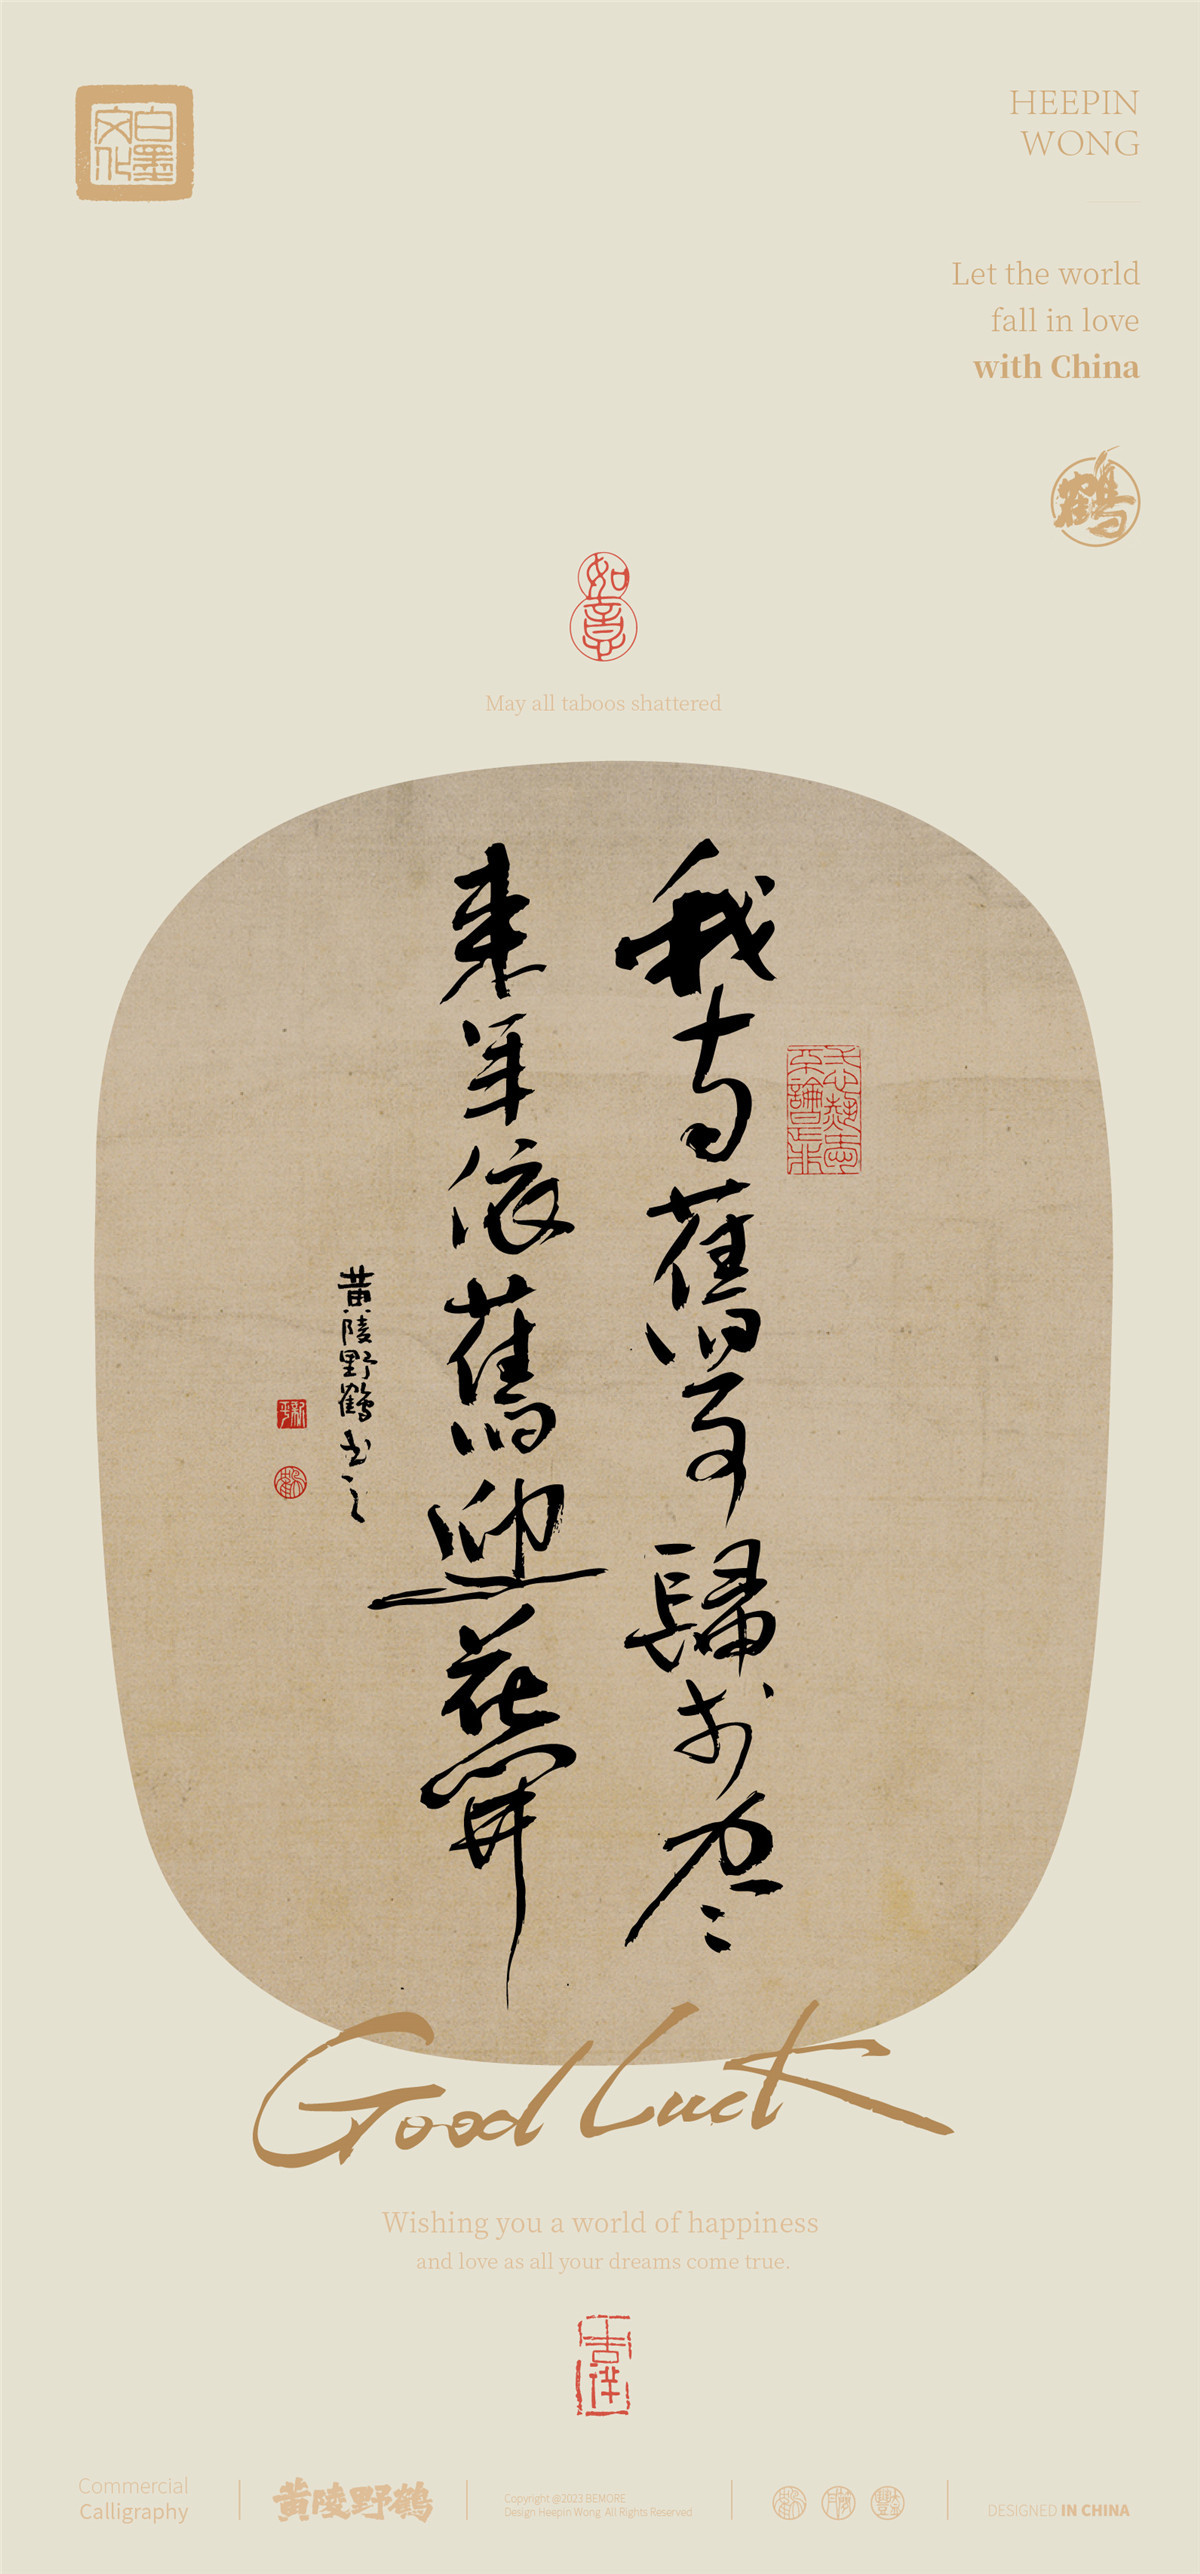 白墨文化
HEEPIN
WONG
Let the world
fall in love
with China
鶴
如意
May all taboos shattered
我与舊事歸於尽
来年依舊迎花開
黄陵野鶴书之
Good Luck
Wishing you a world of happiness
and love as all your dreams come true.
吉祥
Commercial
Calligraphy
黄陵野鶴
Copyright @2023 BEMORE
Design Heepin Wong. All Rights Reserved
DESIGNED IN CHINA